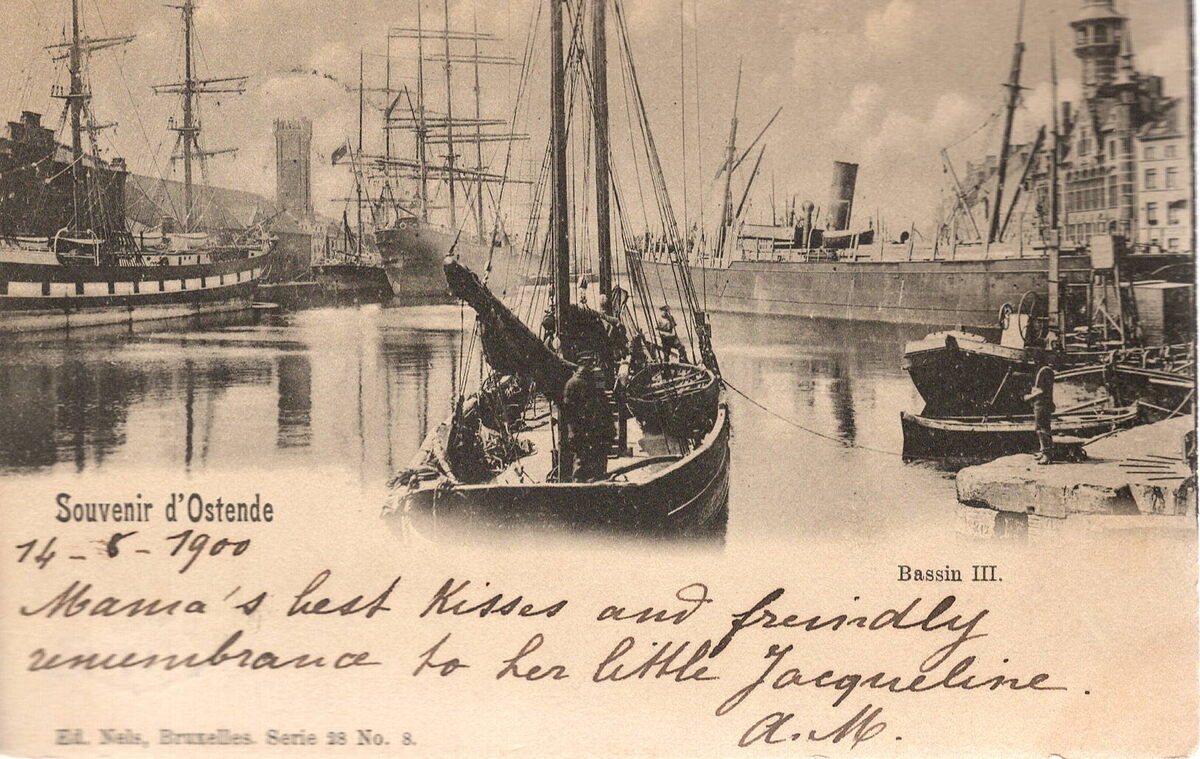 Souvenir d'Ostende
14-8-1900
Bassin III.
Mama's best Kisses and freindly
remembrance to her little Jacqueline.
A.M.
Ed. Nels, Bruxelles. Serie 28 No. 8.